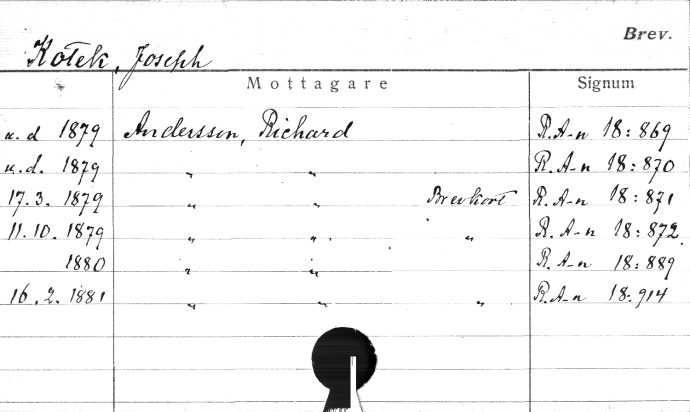 Brev.
Kotek, Joseph
Mottagare Signum
u.d 1879 Andersson, Richard R.A-n 18:869
u.d. 1879 " " R.A-n 18:870
17.3. 1879 " " Brevkort R.A-n 18:871
11.10. 1879 " " " R.A-n 18:872
1880 " " R.A-n 18:889
16.2. 1881 " " " R.A-n 18:914